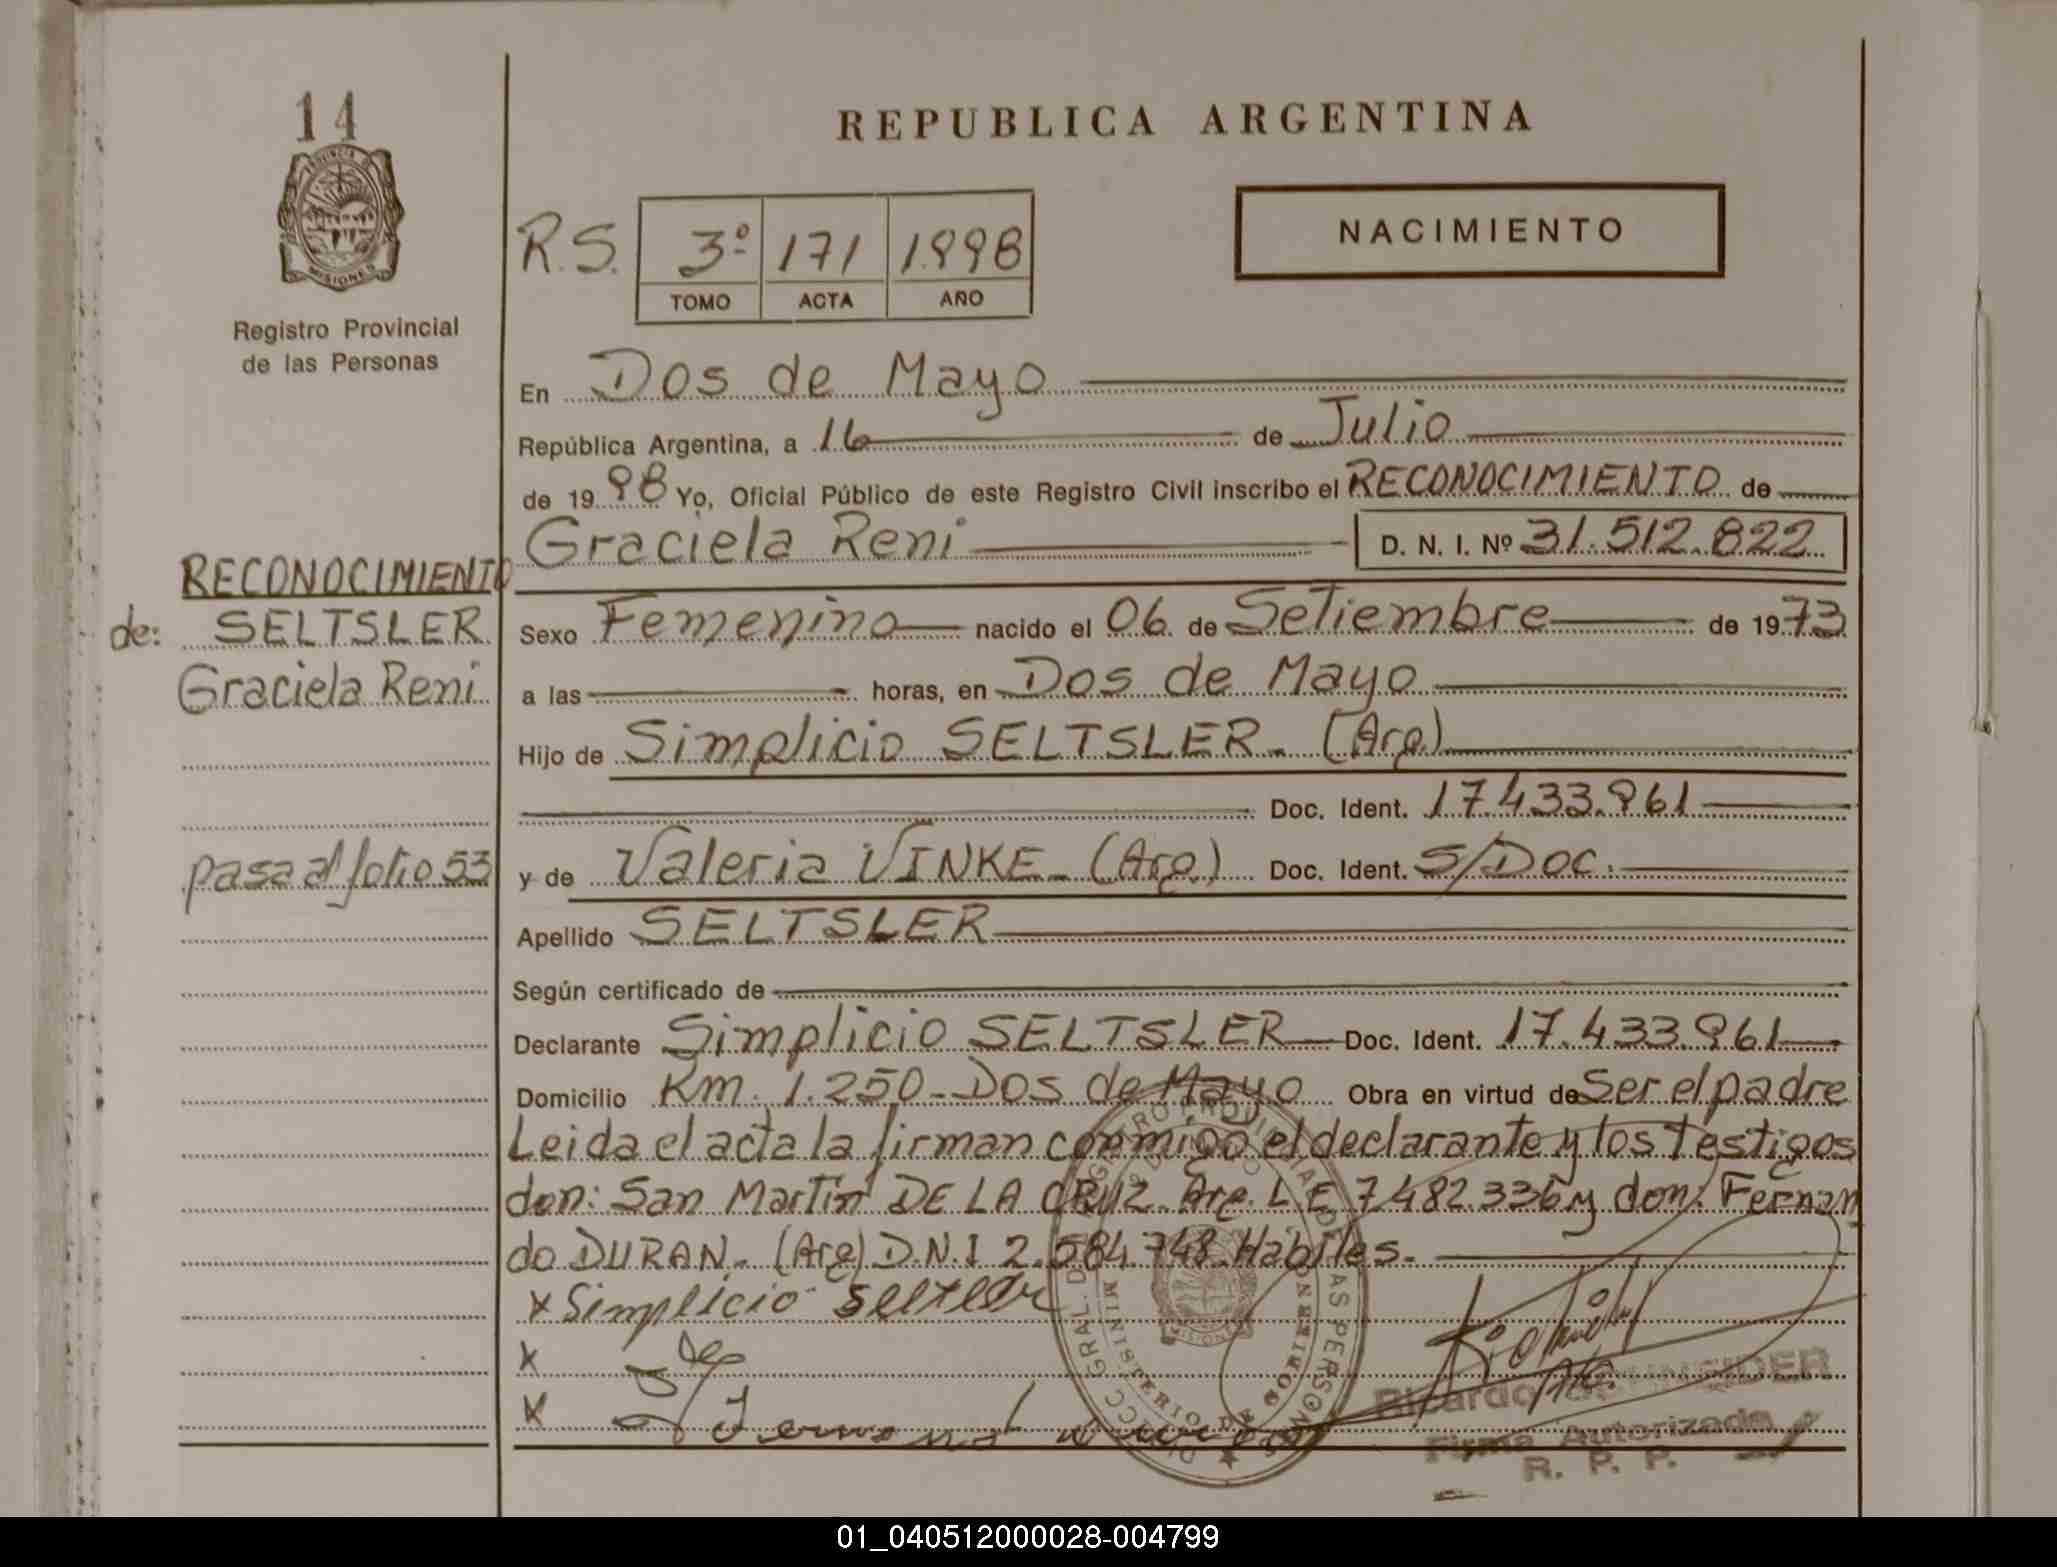 14
PROVINCIA DE
MISIONES
Registro Provincial
de las Personas
REPUBLICA ARGENTINA
R.S. 3º 171 1998
TOMO ACTA AÑO
NACIMIENTO
En Dos de Mayo
República Argentina, a 16 de Julio
de 1998 Yo, Oficial Público de este Registro Civil inscribo el RECONOCIMIENTO de
Graciela Reni D. N. I. Nº 31.512.822
RECONOCIMIENTO
de: SELTSLER
Graciela Reni
pasa al folio 53
Sexo Femenino nacido el 06 de Setiembre de 1973
a las horas, en Dos de Mayo
Hijo de Simplicio SELTSLER - (Arg)
Doc. Ident. 17.433.961
y de Valeria VINKE - (Arg) Doc. Ident. S/Doc.
Apellido SELTSLER
Según certificado de
Declarante Simplicio SELTSLER Doc. Ident. 17.433.961
Domicilio Km. 1.250 - Dos de Mayo Obra en virtud de Ser el padre
Leida el acta la firman conmigo el declarante y los testigos
don: San Martín DE LA CRUZ. Arg. L.E 7482.336 y don. Fernan
do DURAN - (Arg) D.N.I 2.584.748. Habiles.-
x Simplicio seltler
x
x
Ricardo
Firma Autorizada
R. P. P.
MINISTERIO DE GOBIERNO
MISIONES
01_040512000028-004799